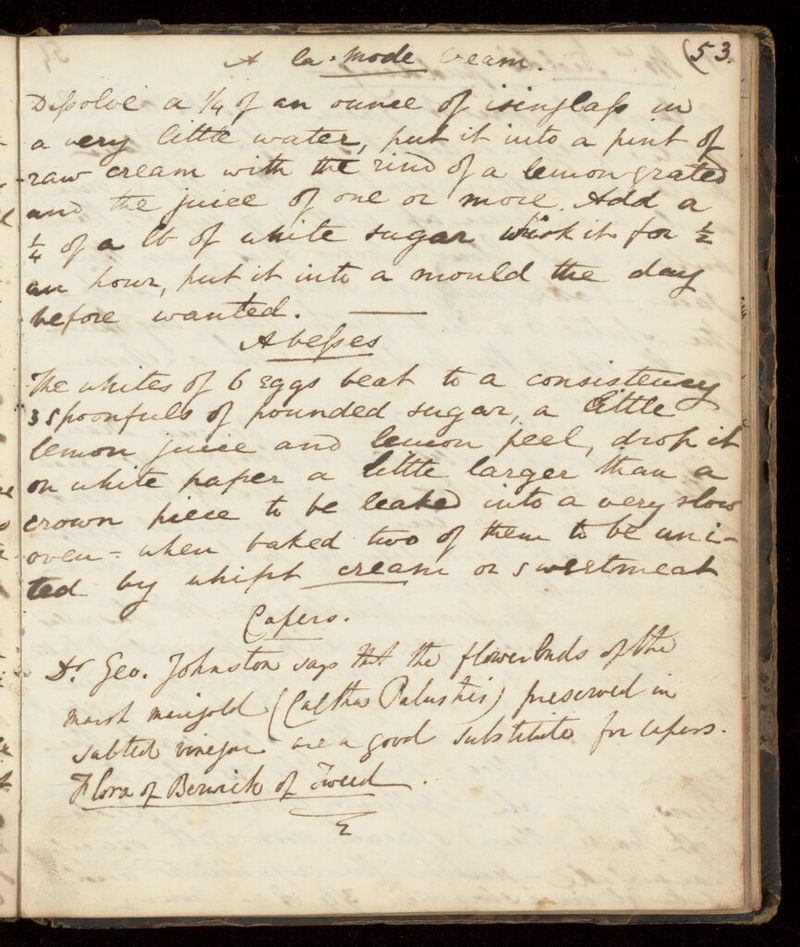 (53.
A la-mode Cream.
Dissolve a 1/4 of an ounce of isinglass in
a very little water, put it into a pint of
raw cream with the rind of a lemon grated
and the juice of one or more. Add a
1/4 of a lb of white sugar whisk it for 1/2
an hour, put it into a mould the day
before wanted.
Abesses
The whites of 6 eggs beat to a consistency
3 spoonfuls of pounded sugar, a little
lemon juice and lemon peel, drop it
on white paper a little larger than a
crown piece to be baked into a very slow
oven - when baked two of them to be uni-
ted by whipt cream or sweetmeat
Capers.
Dr. Geo. Johnston says that the flower buds of the
marsh marigold (Caltha Palustris) preserved in
salted vinegar are a good substitute for capers.
Flora of Berwick of Tweed.